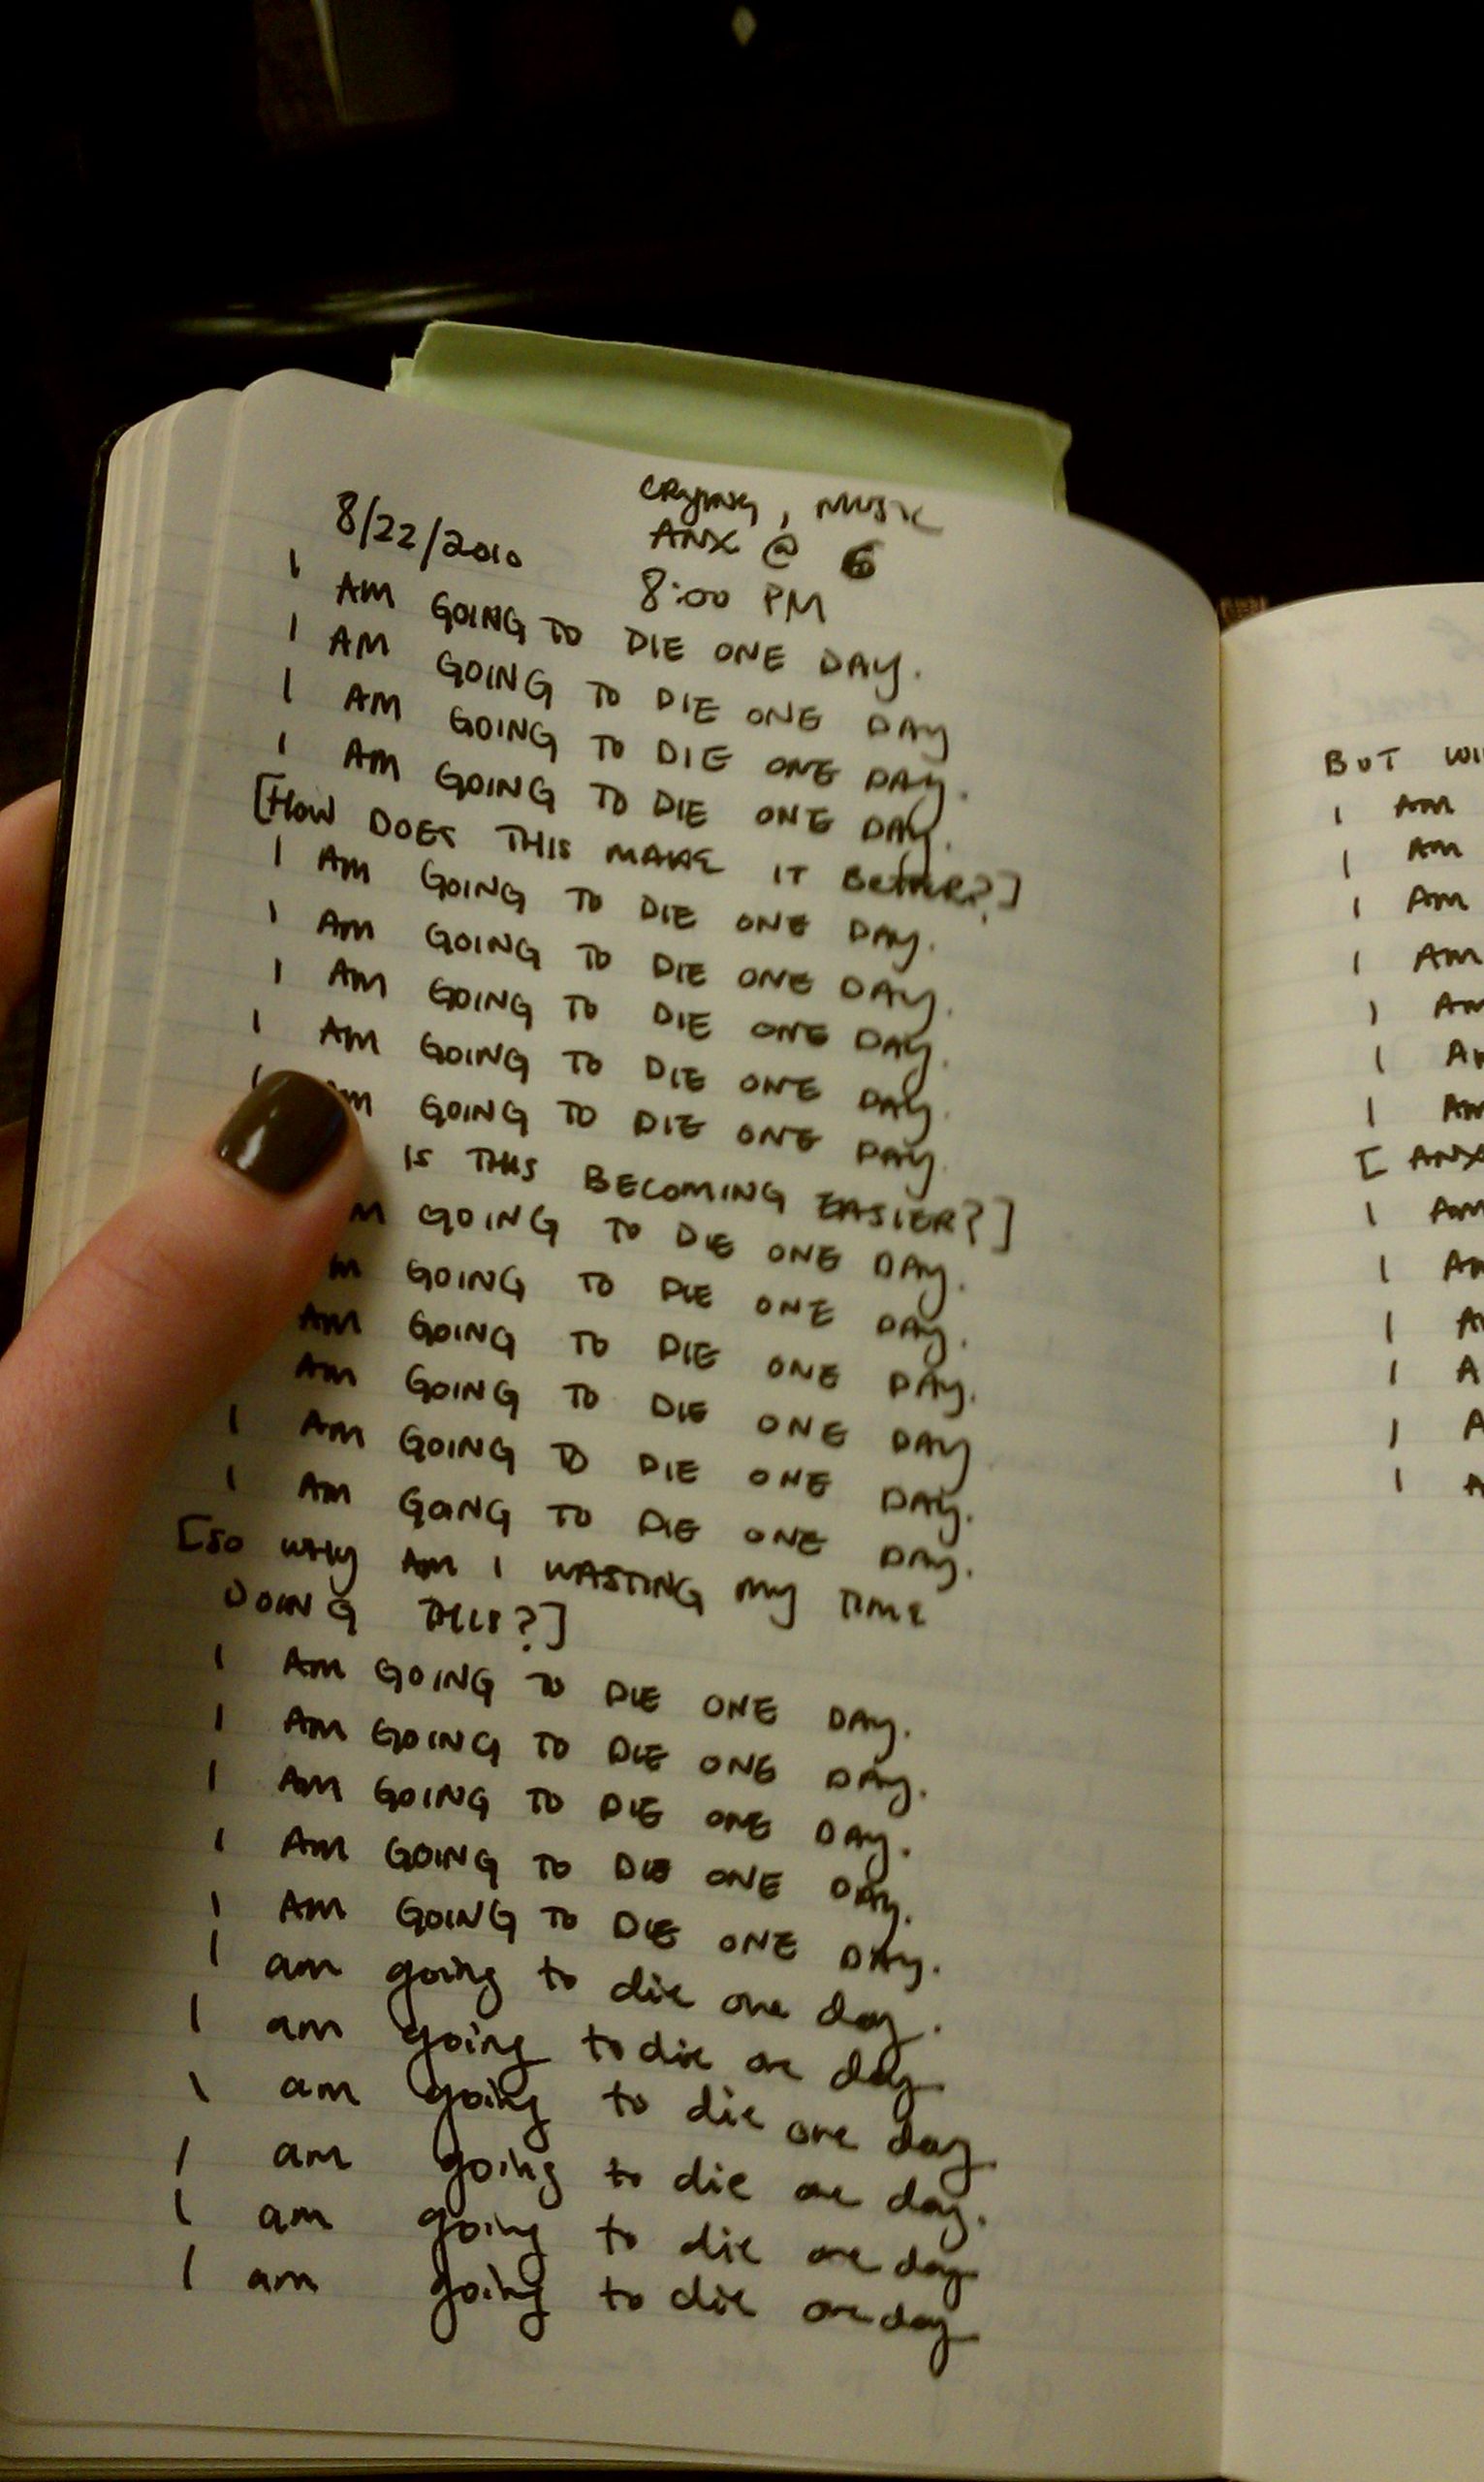 8/22/2010
CRYING, MUSIC
ANX @ 6
8:00 PM
I AM GOING TO DIE ONE DAY.
I AM GOING TO DIE ONE DAY
I AM GOING TO DIE ONE DAY.
I AM GOING TO DIE ONE DAY.
[HOW DOES THIS MAKE IT BETTER?]
I AM GOING TO DIE ONE DAY.
I AM GOING TO DIE ONE DAY.
I AM GOING TO DIE ONE DAY.
I AM GOING TO DIE ONE DAY.
I AM GOING TO DIE ONE DAY.
IS THIS BECOMING EASIER?]
M GOING TO DIE ONE DAY.
M GOING TO DIE ONE DAY.
AM GOING TO DIE ONE DAY.
AM GOING TO DIE ONE DAY
I AM GOING TO DIE ONE DAY.
I AM GOING TO DIE ONE DAY.
[SO WHY AM I WASTING MY TIME
DOING THIS?]
I AM GOING TO DIE ONE DAY.
I AM GOING TO DIE ONE DAY.
I AM GOING TO DIE ONE DAY.
I AM GOING TO DIE ONE DAY.
I AM GOING TO DIE ONE DAY.
I am going to die one day.
I am going to die one day
I am going to die one day.
I am going to die one day.
I am going to die one day
I am going to die one day
BUT
I AM
I AM
I AM
I AM
I AM
I
I AM
[ ANX
I AM
I AM
I
I
I
I